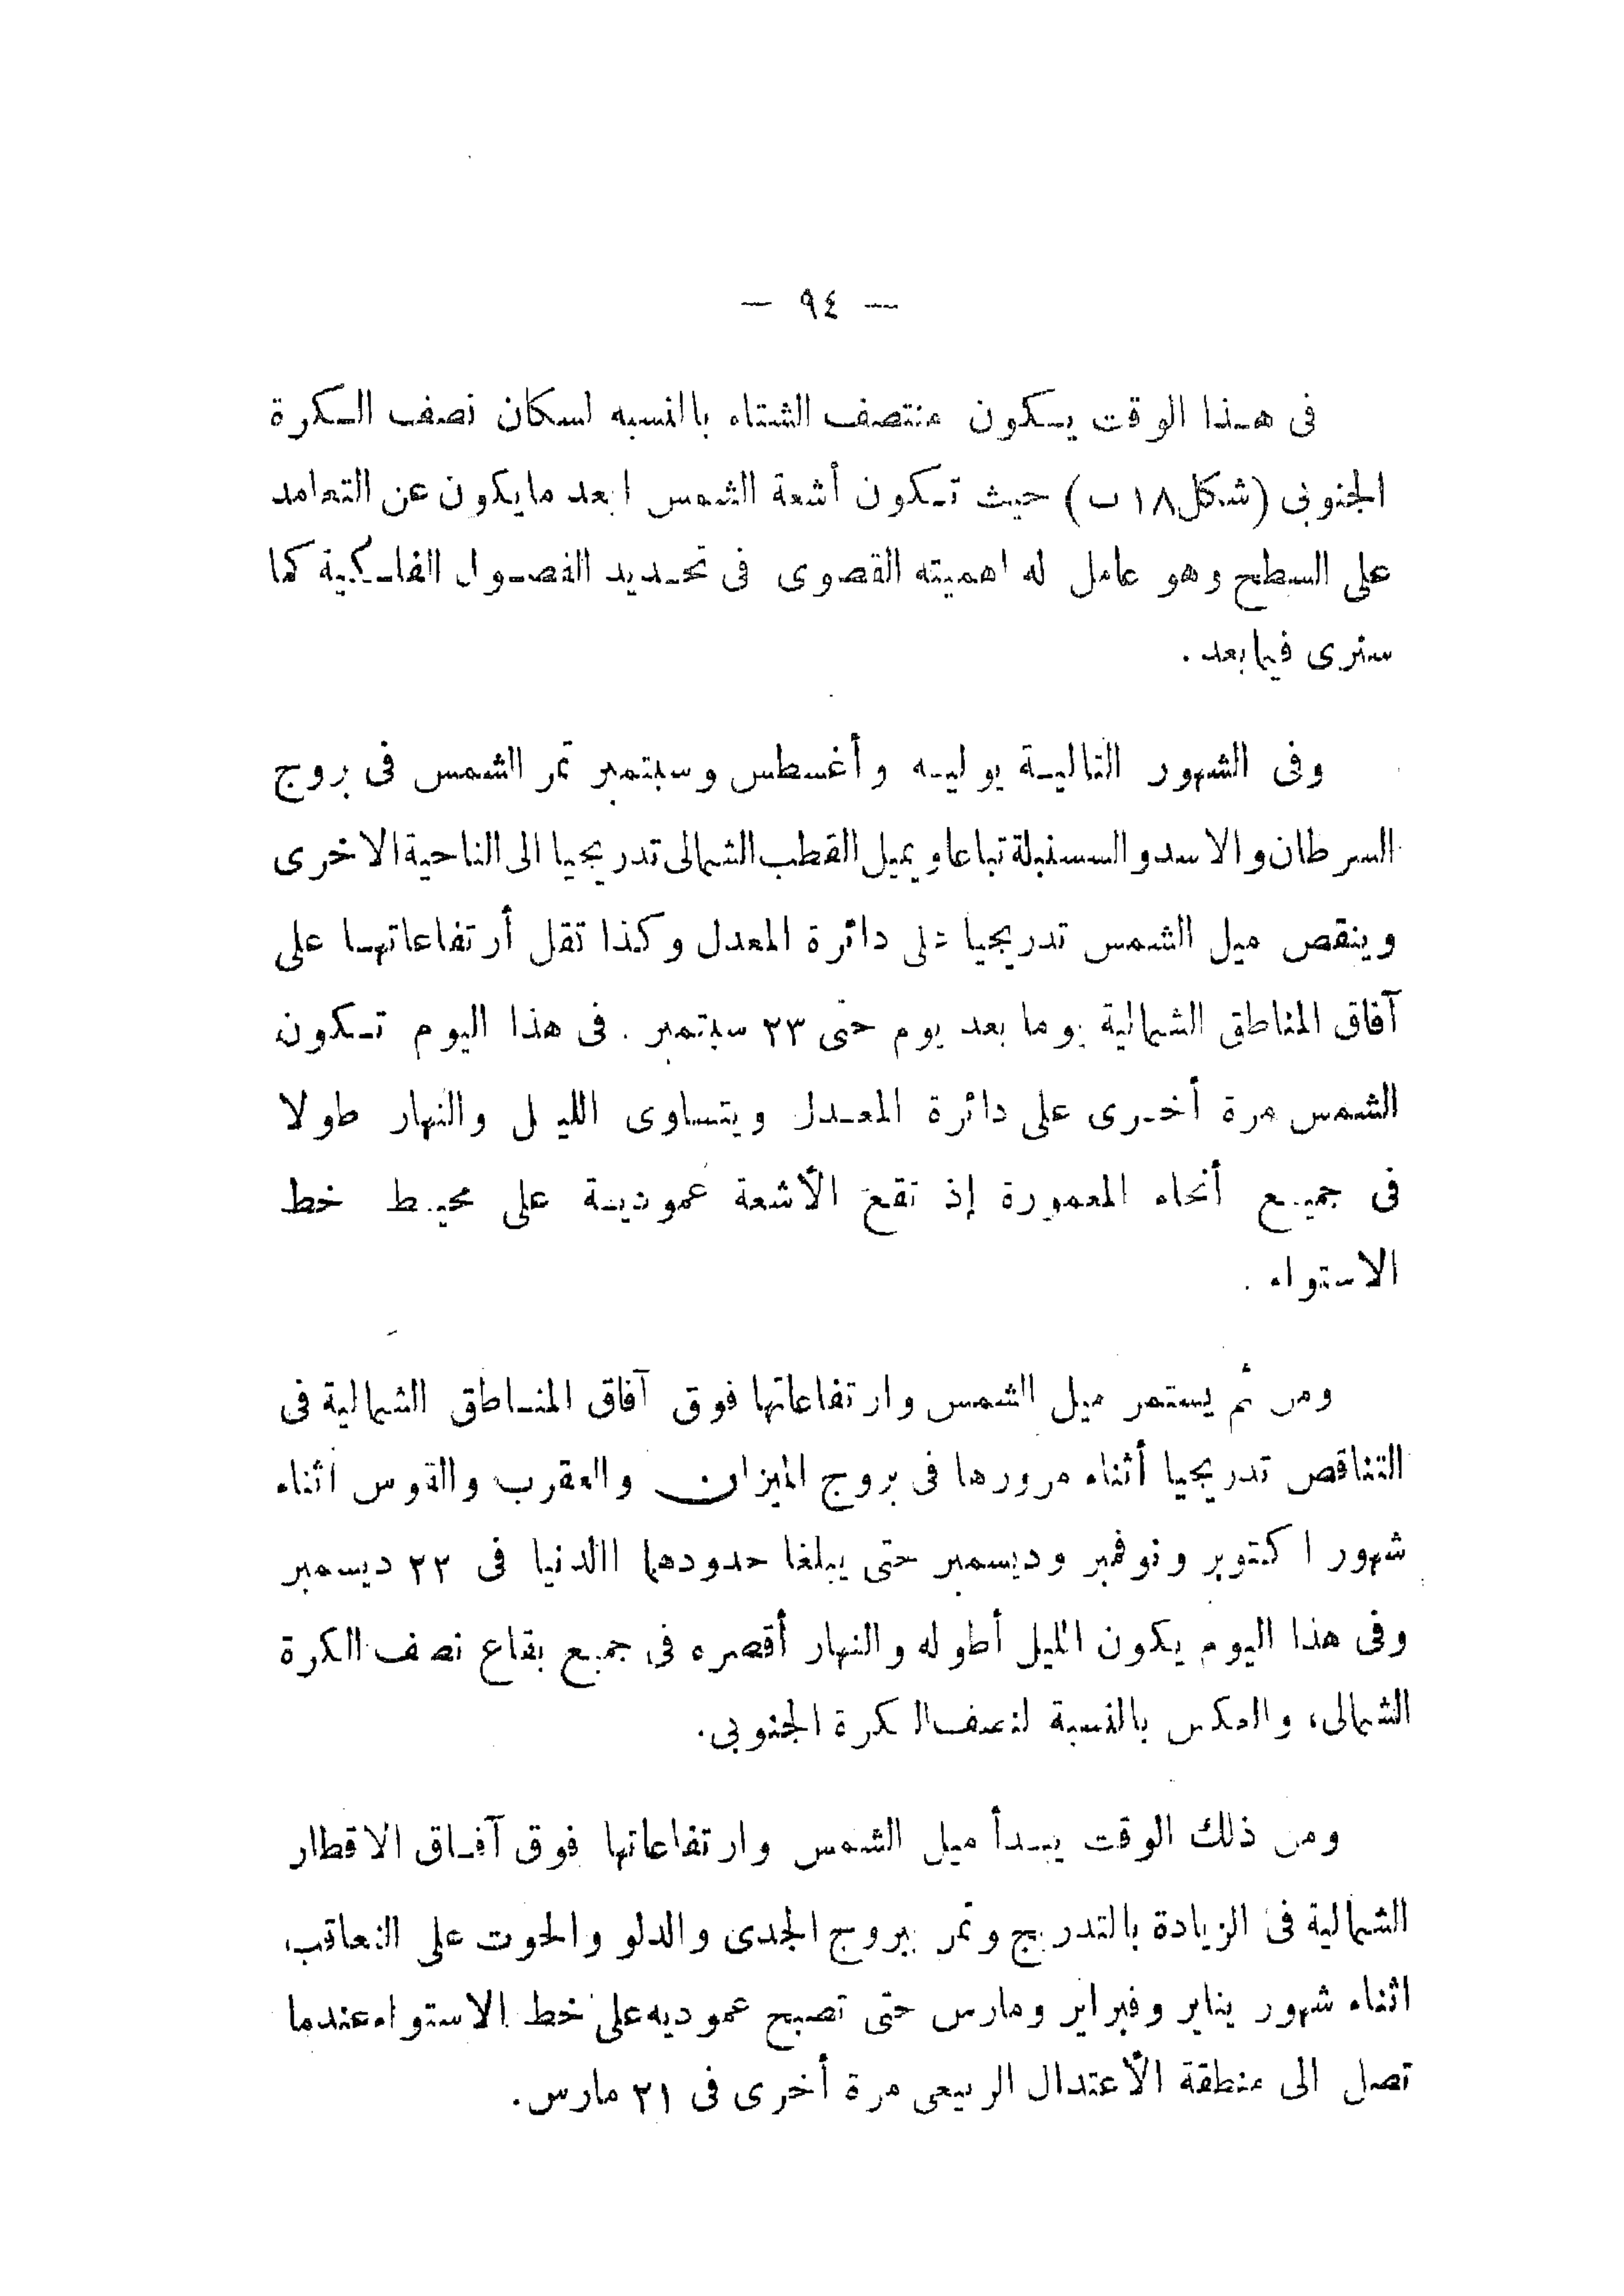 — ٩٤ —
فى هـذا الوقت يـكون منتصف الشتاء بالنسبه لسكان نصف الـكرة
الجنوبى (شكل ١٨ ب) حيث تـكون أشعة الشمس ابعد ما يكون عن التعامد
على السطح وهو عامل له اهميته القصوى فى تحـديد الفصـول الفلـكية كما
سنرى فيما بعد .
وفى الشهور التاليـة يوليـه وأغسطس وسبتمبر تمر الشمس فى بروج
السرطان والاسد والسنبلة تباعا ويميل القطب الشمالى تدريجيا الى الناحية الاخرى
وينقص ميل الشمس تدريجيا على دائرة المعدل وكذا تقل أرتفاعاتهـا على
آفاق المناطق الشمالية يوما بعد يوم حتى ٢٣ سبتمبر . فى هذا اليوم تـكون
الشمس مرة أخـرى على دائرة المعـدل ويتساوى الليل والنهار طولا
فى جميـع أنحاء المعمورة إذ تقع الأشعة عموديـة على محيـط خط
الاستواء .
ومن ثم يستمر ميل الشمس وارتفاعاتها فوق آفاق المنـاطق الشمالية فى
التناقص تدريجيا أثناء مرورها فى بروج الميزان والعقرب والقوس اثناء
شهور اكتوبر ونوفمبر وديسمبر حتى يبلغا حدودهما االدنيا فى ٢٢ ديسمبر
وفى هذا اليوم يكون الليل أطوله والنهار أقصره فى جميع بقاع نصف الكرة
الشمالى، والعكس بالنسبة لنصف الكرة الجنوبى.
ومن ذلك الوقت يبـدأ ميل الشمس وارتفاعاتها فوق آفـاق الاقطار
الشمالية فى الزيادة بالتدريج وتمر ببروج الجدى والدلو والحوت على التعاقب
اثناء شهور يناير وفبراير ومارس حتى تصبح عموديه على خط الاستواء عندما
تصل الى منطقة الأعتدال الربيعى مرة أخرى فى ٢١ مارس.